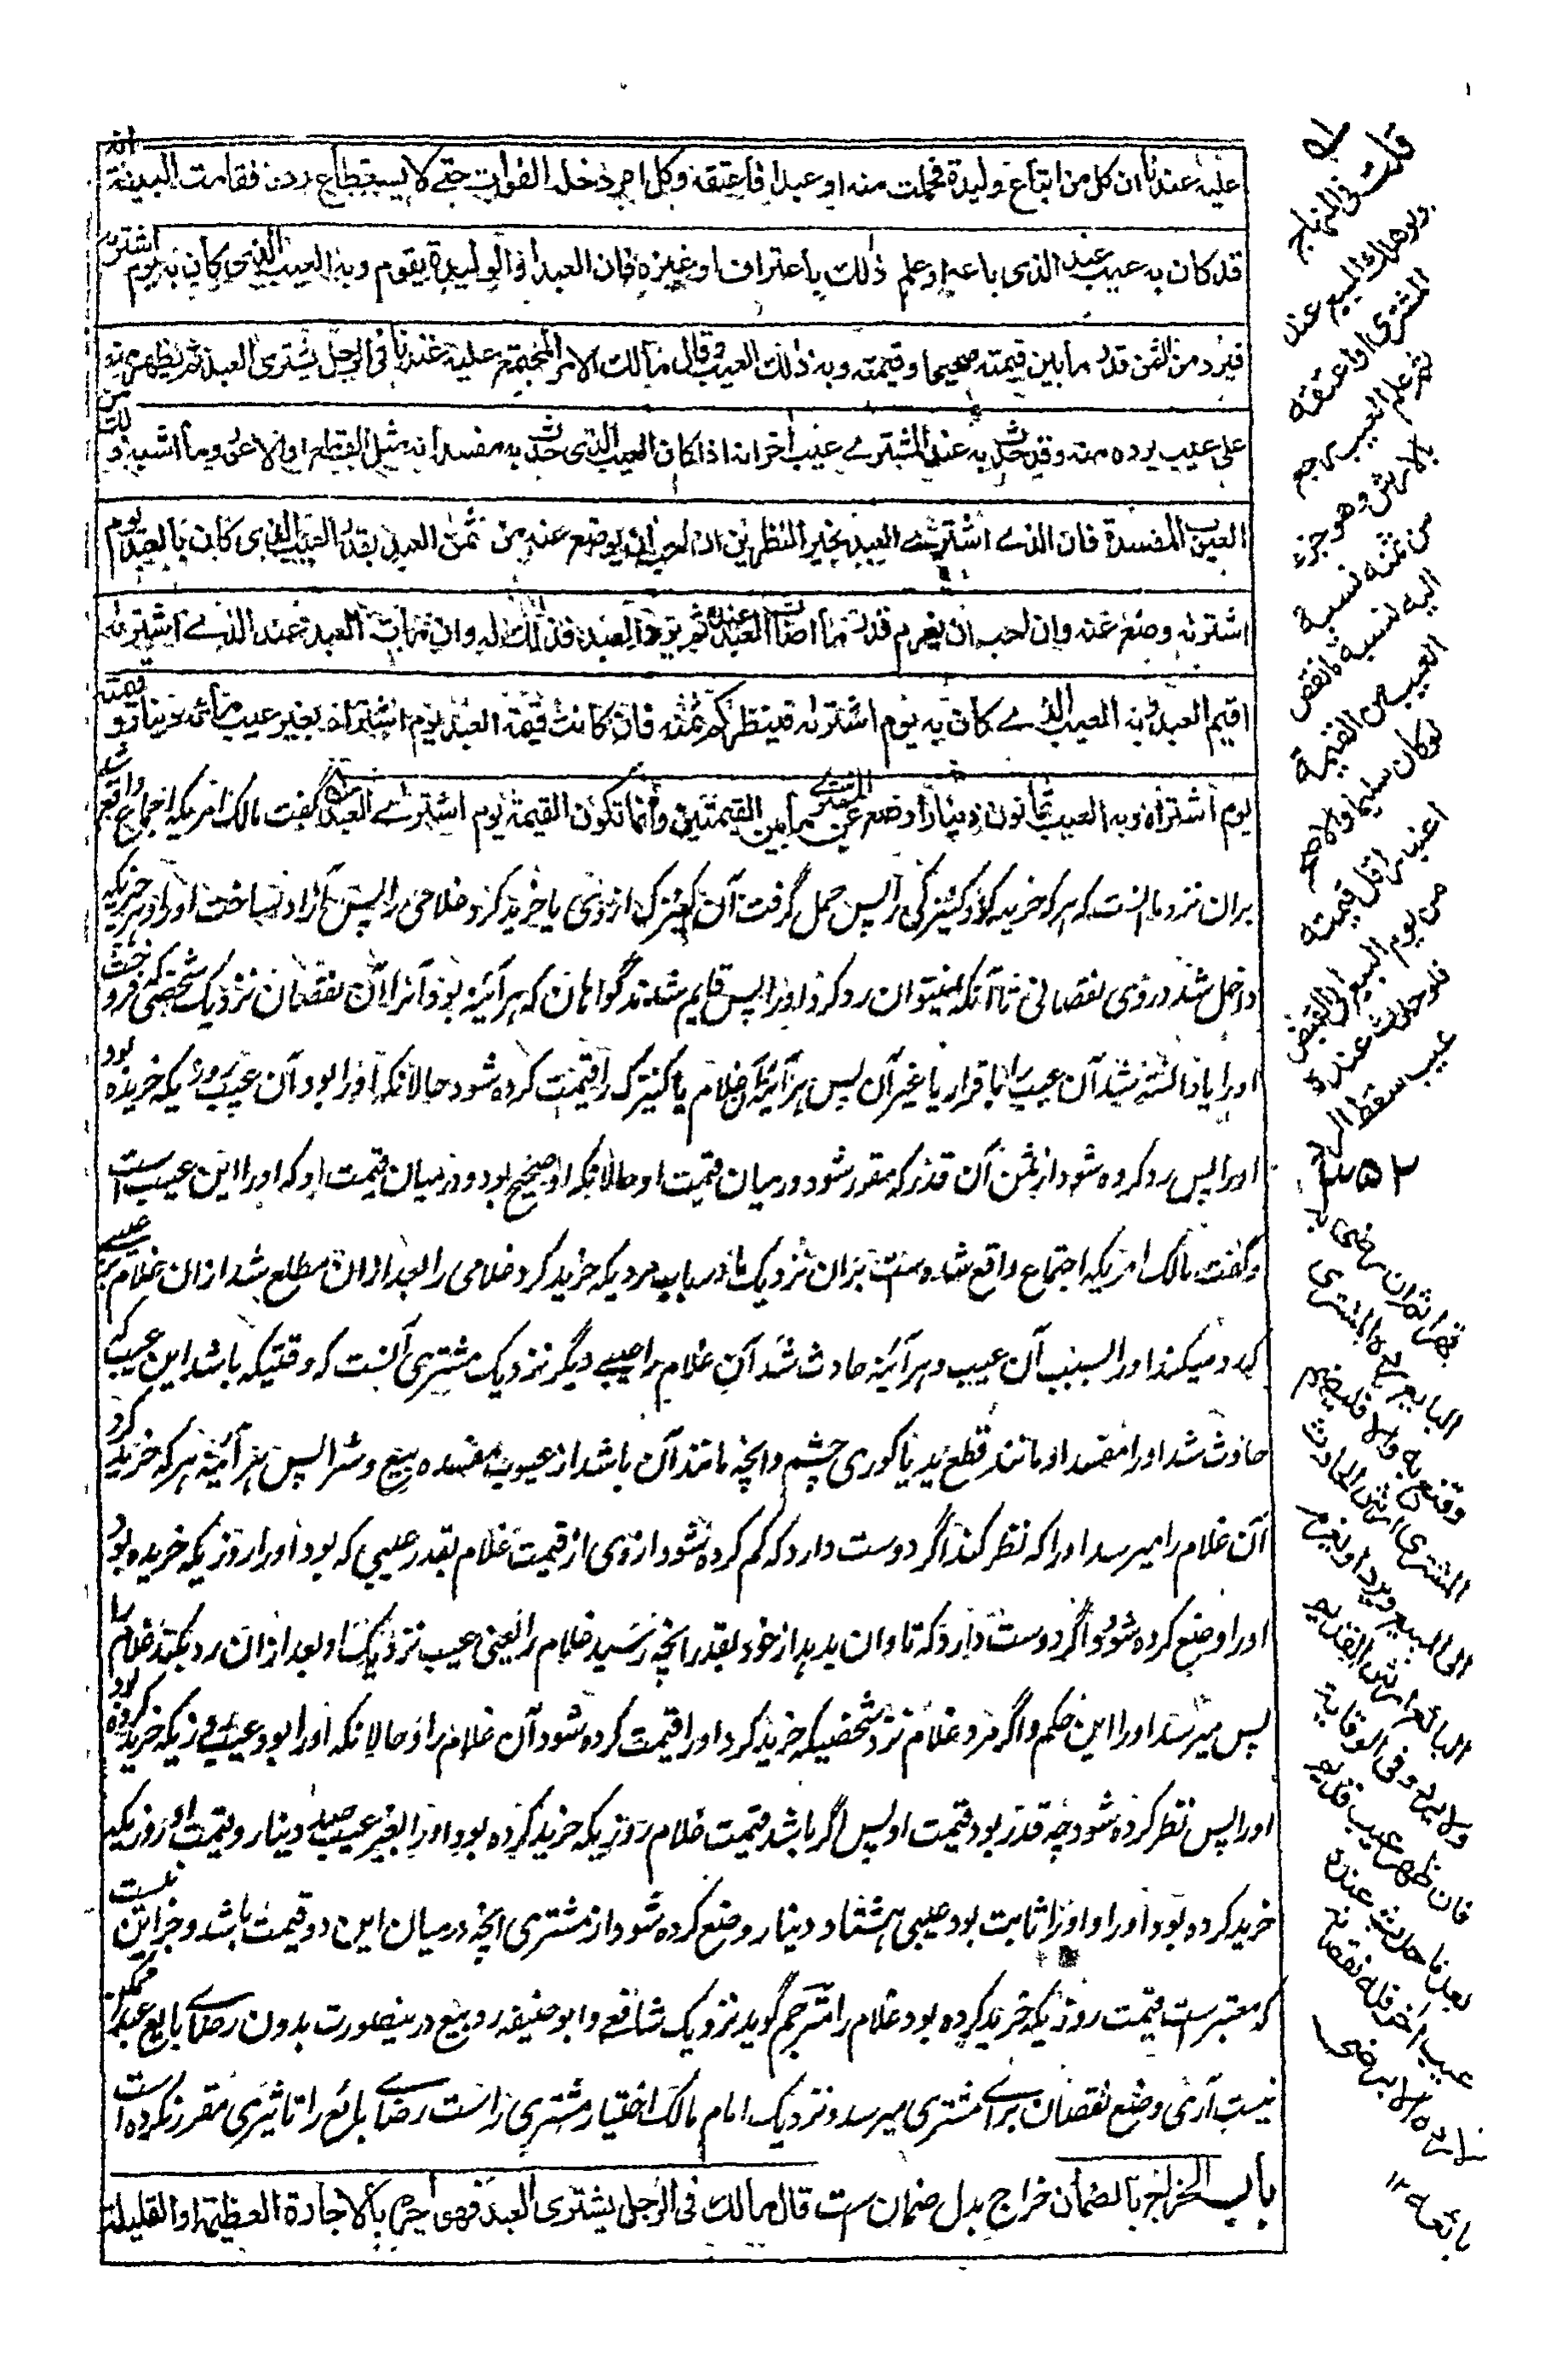 عليه عندنا ان كل من ابتاع وليدة فحملت منه او عبدا فاعتقه وكل امر دخله الفوات حتے لا يستطاع رده فقامت البينة انه
قد كان به عيب عند الذى باعه او علم ذلك باعتراف او غيره فان العبد او الوليدة يقوم وبه العيب الذى كان به يوم اشتراه
فيرد من الثمن قدر ما بين قيمته صحيحا وقيمته وبه ذلك العيب قال مالك الامر المجتمع عليه عندنا فى الرجل يشترى العبد ثم يظهر منه
على عيب يرده منه وقد حدث به عند المشترے عيب اخر انه اذا كان العيب الذى حدث به مفسدا نه مثل القطع او العور وما اشبه ذلك من
العيوب المفسدة فان الذے اشترے العبد بخير النظرين ان احب ان يوضع عنه من ثمن العبد بقدر العيب الذى كان بالعبد يوم
اشتراه وضع عنه وان احب ان يغرم قدر ما اصاب العبد عنده ثم يرد العبد فذلك له وان مات العبد عند الذے اشتراه
اقيم العبد وبه العيب الذے كان به يوم اشتراه فينظر كم ثمنه فان كانت قيمة العبد يوم اشتراه بغير عيب مائة دينار وقيمته
يوم اشتراه وبه العيب ثمانون دينارا وضع عن المشترے ما بين القيمتين وانما تكون القيمة يوم اشترے العبد گفت مالک امریکہ اجماع واقع شد
بران نزد ما آنست کہ ہر کہ خرید کرد کنیزکی را پس حمل گرفت آن کنیزک ازوی یا خرید کرد غلامی را پس آزاد ساخت او را و ہر چیزیکہ
داخل شد در وی نقصانی تا آنکہ نمیتوان رد کرد او را پس قایم شدند گواہان کہ ہر آئینہ بود آنرا آن نقصان نزدیک شخصی کہ فروخت
او را یا دانستہ شد آن عیب با قرار یا غیر آن پس ہر آئینہ آن غلام یا کنیزک را قیمت کردہ شود حالانکہ او را بود آن عیب روزیکہ خریدہ بود
او را پس رد کردہ شود از ثمن آن قدر کہ مقرر شود در میان قیمت او حالانکہ او صحیح بود و در میان قیمت او کہ او را این عیب است
و گفت مالک امریکہ اجتماع واقع شدہ است بران نزدیک ما در باب مردیکہ خرید کرد غلامی را بعد ازان مطلع شد ازان غلام بر عیبے
کہ رد میکند او را بسبب آن عیب و ہر آئینہ حادث شد آن غلام را عیبے دیگر نزدیک مشتری آنست کہ وقتیکہ باشد این عیب کہ
حادث شد او را مفسد او مانند قطع ید یا کوری چشم و آنچہ مانند آن باشد از عیوب مفسدہ بیع و شرا پس ہر آئینہ ہر کہ خرید کرد
آن غلام را میرسد او را کہ نظر کند اگر دوست دارد کہ کم کردہ شود ازوی از قیمت غلام بقدر عیبی کہ بود او را روزیکہ خریدہ بود
او را وضع کردہ شود و اگر دوست دارد کہ تاوان بدہد از خود بقدر آنچہ رسید غلام را یعنی عیب نزدیک او بعد ازان رد بکند غلام را
پس میرسد او را این حکم و اگر مرد غلام نزد شخصیکہ خرید کرد او را قیمت کردہ شود آن غلام را و حالانکہ او را بود عیب روزیکہ خرید کردہ بود
او را پس نظر کردہ شود چہ قدر بود قیمت او پس اگر باشد قیمت غلام روزیکہ خرید کردہ بود او را بغیر عیب صد دینار و قیمت او روزیکہ
خرید کردہ بود او را و او را ثابت بود عیبی ہشتاد دینار وضع کردہ شود از مشتری آنچہ در میان این دو قیمت باشد و جز این نیست
کہ معتبر است قیمت روزیکہ خرید کردہ بود غلام را مترجم گوید نزدیک شافعے و ابو حنیفہ رد بیع درینصورت بدون رضاے بایع ممکن
نیست آری وضع نقصان براے مشتری میرسد و نزدیک امام مالک اختیار مشتری راست رضاے بائع را تاثیری مقرر نکردہ است
باب الخراج بالضمان خراج بدل ضمان ست قال مالك فى الرجل يشترى العبد فيواجره بالاجارة العظيمة او القليلة
قلت فى المنهاج
ولو هلك المبيع عند
المشترى او اعتقه
ثم علم العيب رجع
بالارش وهو جزء
من ثمنه نسبة
اليه نسبة ما نقص
العيب من القيمة
لو كان سليما والاصح
اعتبار اقل قيمته
من يوم البيع الى القبض
فلو حدث عنده
عيب سقط الرد
قهرا ثم ان رضى به
البايع رده المشترى
وقنع به والا فليضم
المشترى ارش الحادث
الى المبيع ويرد او يغرم
البائع ارش القديم
ولا يرد وفى الوقاية
فان ظهر عيب قديم
بعد ما حدث عنده
عيب اخر فله نقصانه
لا رده الا برضى
بائعه ١٢